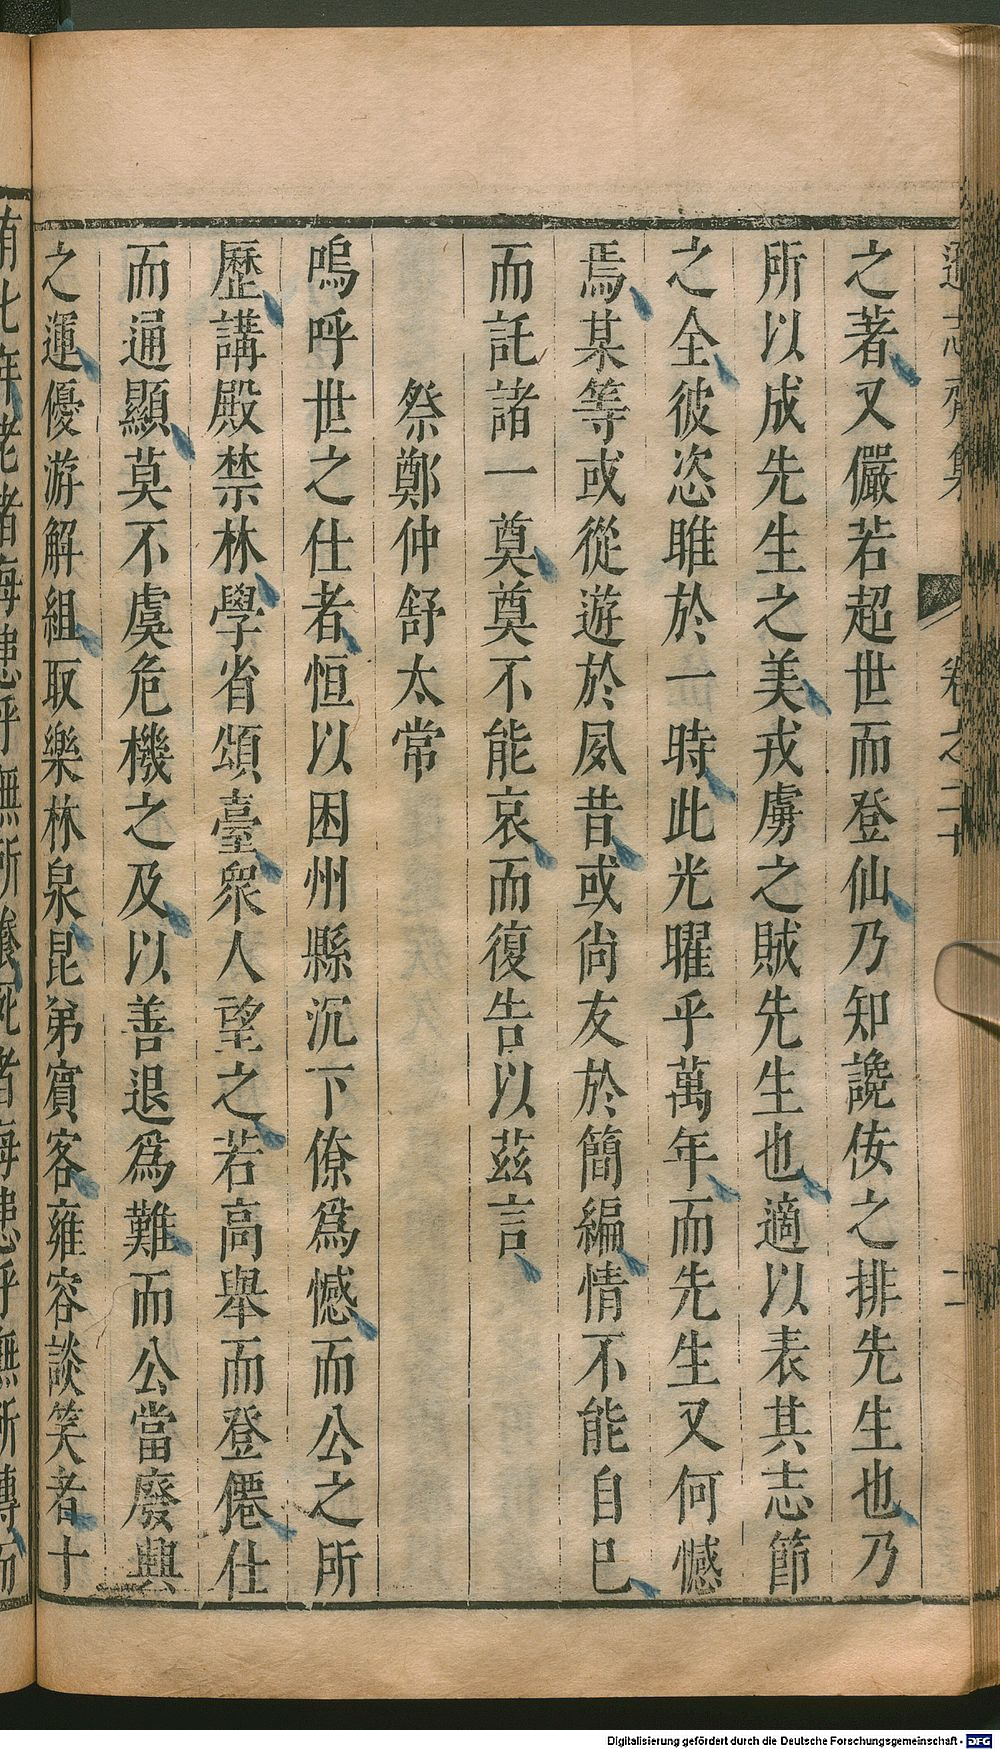 遜志齋集
卷之二十
二
之著又儼若超世而登仙乃知讒侫之排先生也乃
所以成先生之美戎虜之賊先生也適以表其志節
之全彼恣睢於一時此光曜乎萬年而先生又何憾
焉某等或從遊於夙昔或尙友於簡編情不能自已
而託諸一奠奠不能哀而復告以茲言
祭鄭仲舒太常
嗚呼世之仕者恒以困州縣沉下僚爲憾而公之所
歷講殿禁林學省頌臺衆人望之若高舉而登僊仕
而通顯莫不虞危機之及以善退爲難而公當廢興
之運優游解組取樂林泉昆弟賓客雍容談笑者十
有七年老者每患乎無所養死者每患乎無所傳而
Digitalisierung gefördert durch die Deutsche Forschungsgemeinschaft - DFG